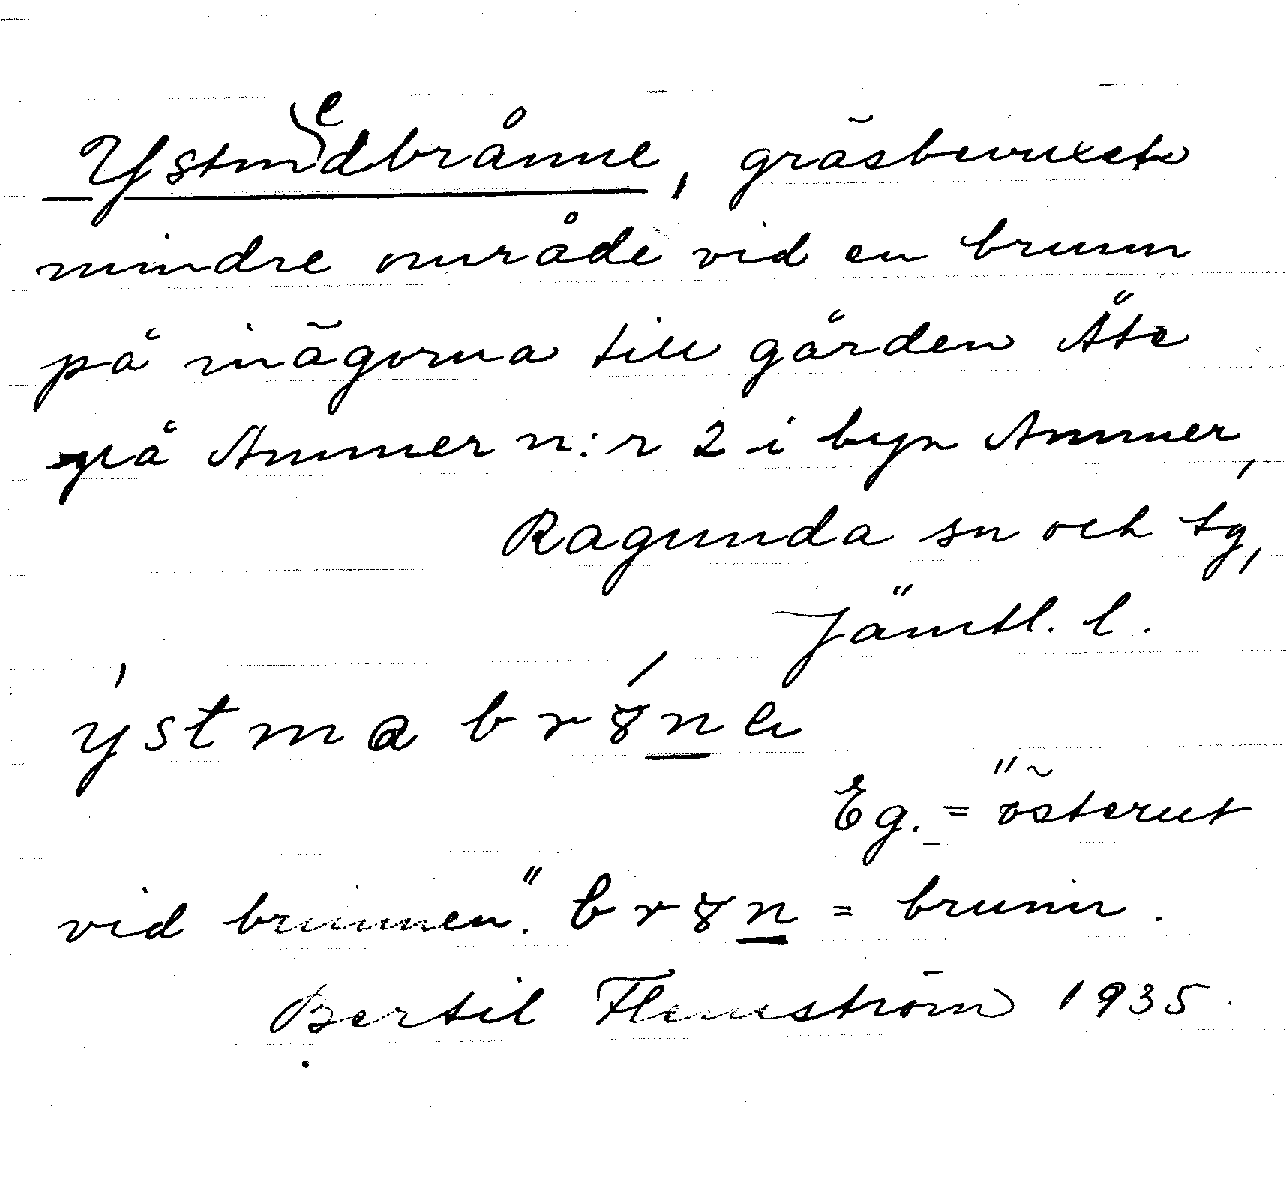 Ystmedbrånne, gräsbevuxet
mindre område vid en brunn
på inägorna till gården Äte
på Ammer n:r 2 i byn Ammer,
Ragunda sn och tg,
Jämtl. l.
ýstma brɤ́na
Eg. = "österut
vid brunnen". brɤn = brunn.
Bertil Flemström 1935